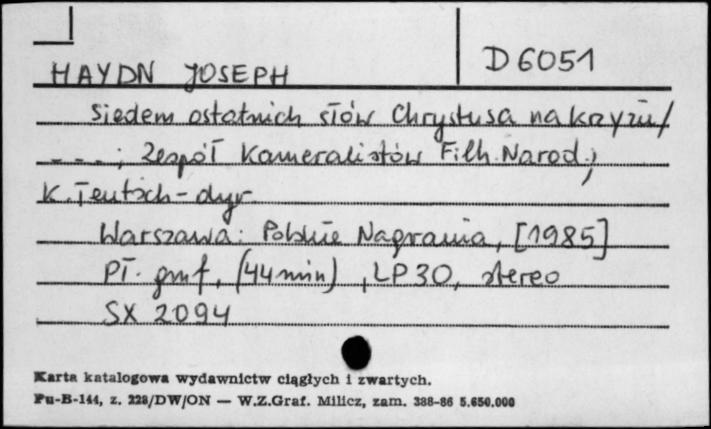 D 6051
HAYDN JOSEPH
Siedem ostatnich słów Chrystusa na krzyżu /
---; Zespół Kameralistów Filh. Narod.;
K. Teutsch - dyr.
Warszawa: Polskie Nagrania, [1985]
Pł. gmf, (44 min), LP30, stereo
SX 2094
Karta katalogowa wydawnictw ciągłych i zwartych.
Pu-B-144, z. 228/DW/ON — W.Z.Graf. Milicz, zam. 388-86 5.650.000